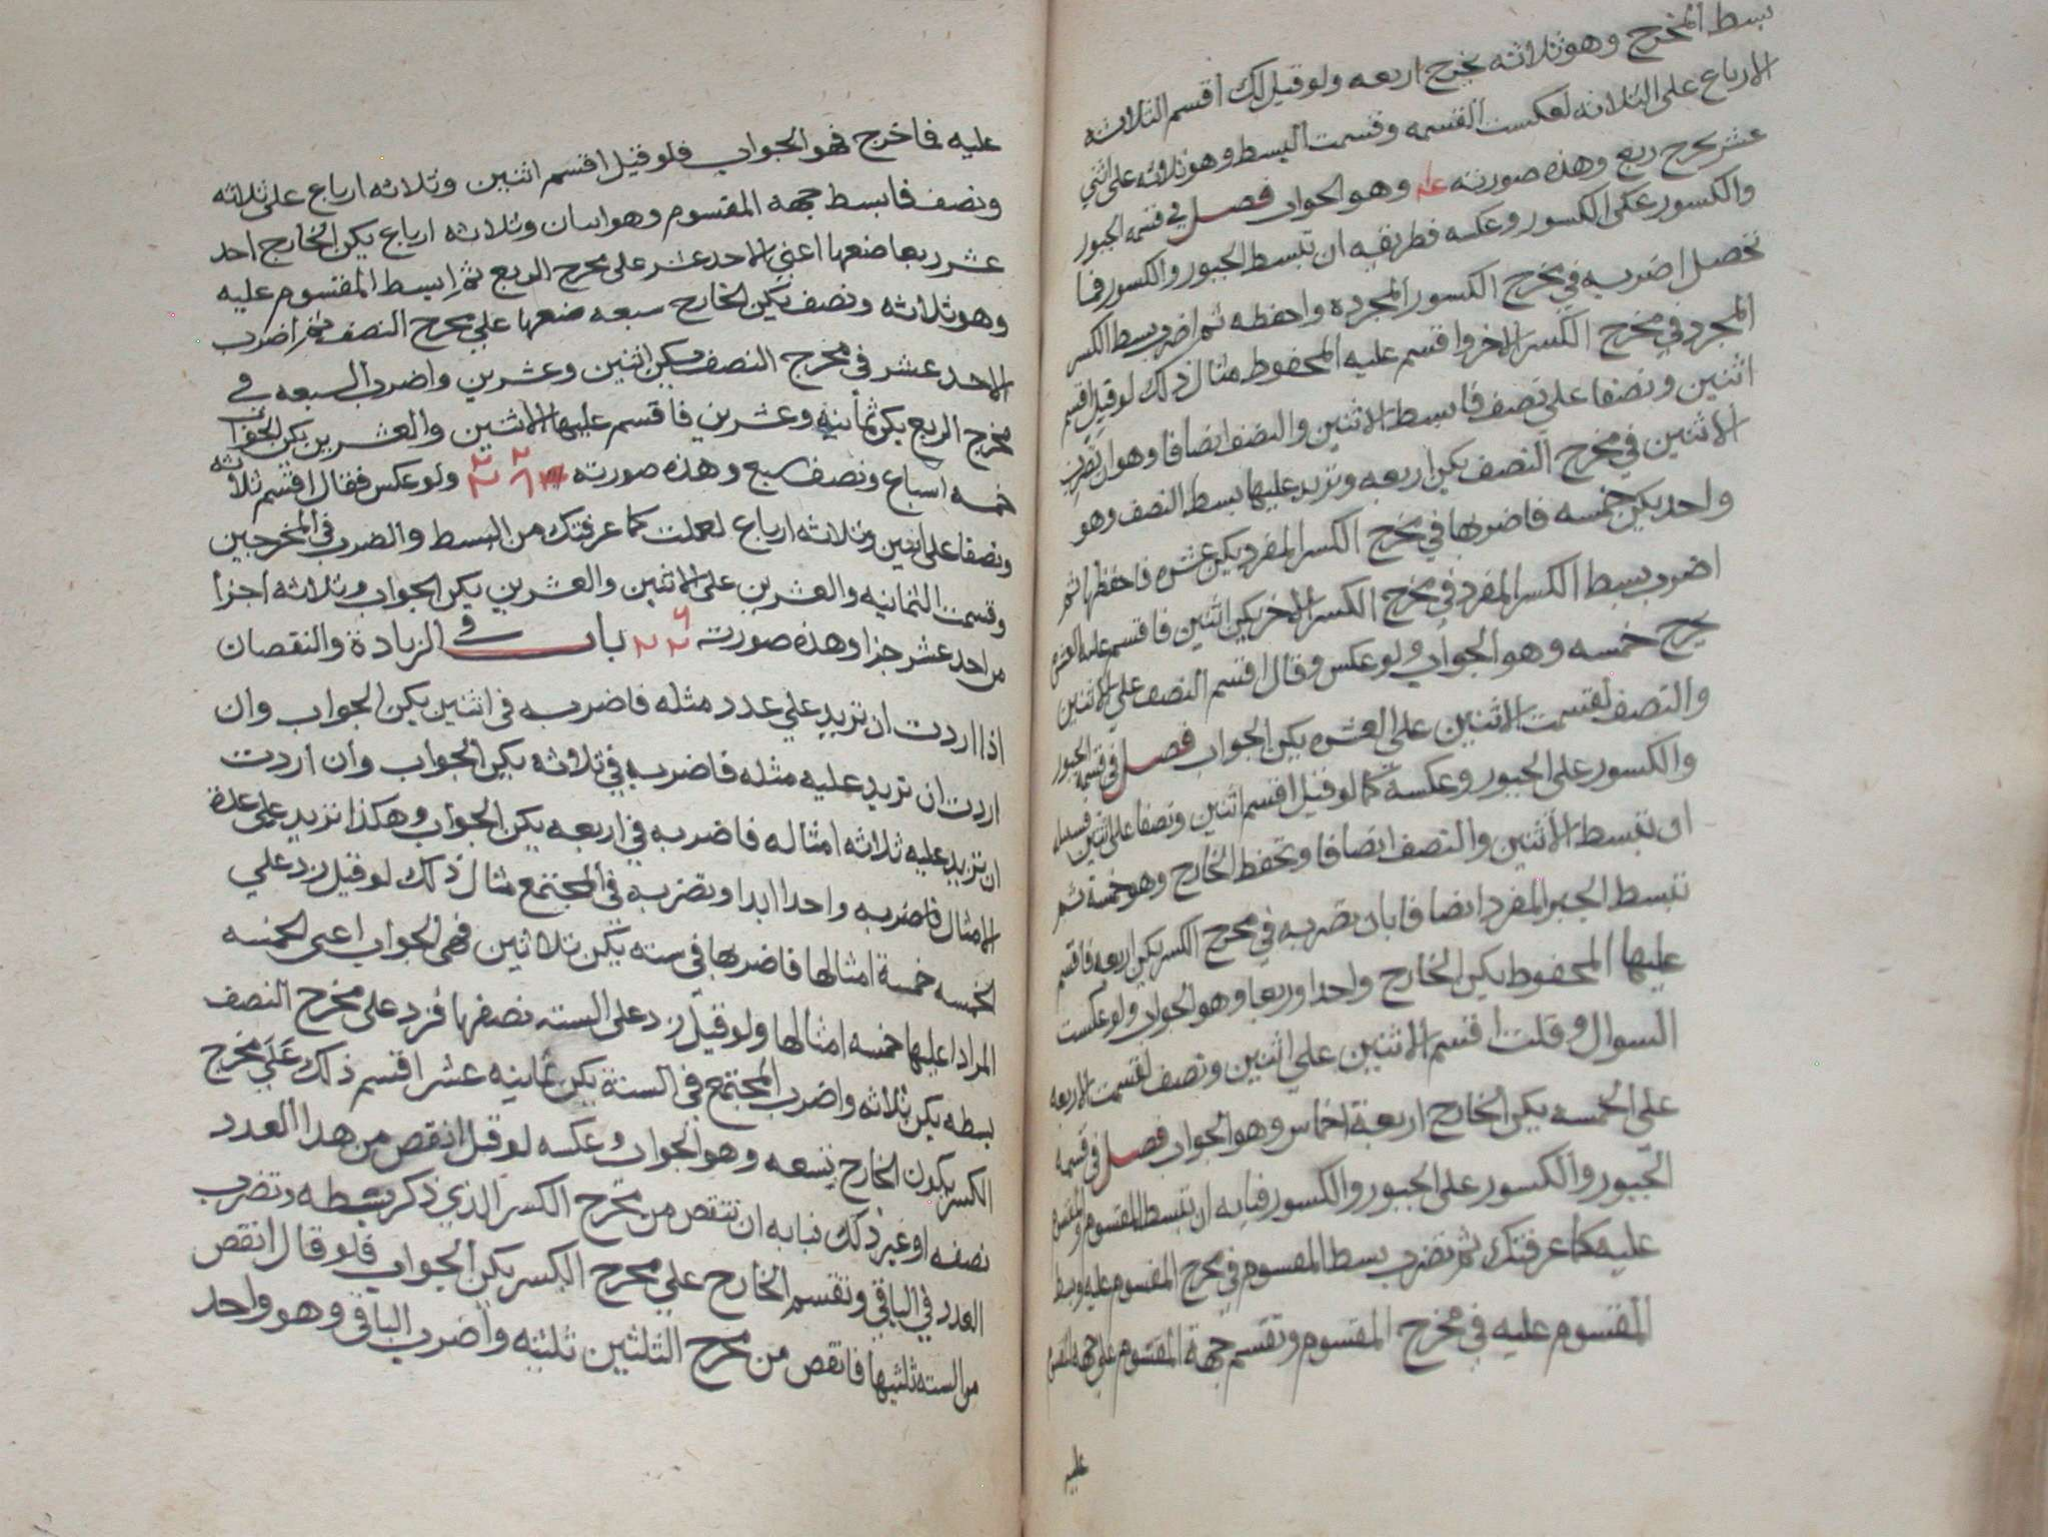 بسط المخرج وهو ثلاثه يخرج اربعه ولو قيل لك اقسم الثلاثه
الارباع على الثلاثه لعكست القسمه وقسمت البسط وهو ثلاثه على اثني
عشر يخرج ربع وهذه صورته وهو الجواب فصل في قسمه الجبور
والكسور على الكسور وعكسه فطريقه ان تبسط الجبور والكسور فما
تحصل اضربه في مخرج الكسور المجرده واحفظه ثم اضرب بسط الكسر
المجرد في مخرج الكسر الاخر واقسم عليه المحفوظ مثال ذلك لو قيل اقسم
اثنين ونصفا على نصف فابسط الاثنين والنصف ايضافا وهو ان تضرب
الاثنين في مخرج النصف يكن اربعه وتزيد عليها بسط النصف وهو
واحد يكن خمسه فاضربها في مخرج الكسر المفرد يكن عشره فاحفظها ثم
اضرب بسط الكسر المفرد في مخرج الكسر الاخر يكن اثنين فاقسم عليه العشره
يخرج خمسه وهو الجواب ولو عكس وقال اقسم النصف على الاثنين
والنصف لقسمت الاثنين على العشره يكن الجواب فصل في قسمة الجبور
والكسور على الجبور وعكسه كما لو قيل اقسم اثنين ونصفا على اثنين
ان تبسط الاثنين والنصف ايضافا وتحفظ الخارج وهو خمسة ثم
تبسط الجبر المفرد ايضافا بان تضربه في مخرج الكسر يكن اربعه فاقسم
عليها المحفوظ يكن الخارج واحدا وربعا وهو الجواب ولو عكست
السوال وقلت اقسم الاثنين على اثنين ونصف لقسمت الاربعه
على الخمسه يكن الخارج اربعة اخماس وهو الجواب فصل في قسمه
الجبور والكسور على الجبور والكسور فبابه ان تبسط المقسوم والمقسوم
عليه كما عرفتك ثم تضرب بسط المقسوم في مخرج المقسوم عليه وبسط
المقسوم عليه في مخرج المقسوم وتقسم جهة المقسوم على جهة المقسوم
عليه
عليه فما خرج فهو الجواب فلو قيل اقسم اثنين وثلاثه ارباع على ثلاثه
ونصف فابسط جهه المقسوم وهو اثنان وثلاثه ارباع يكن الخارج احد
عشر ربعا ضعها اعني الاحد عشر على مخرج الربع ثم ابسط المقسوم عليه
وهو ثلاثه ونصف يكن الخارج سبعه ضعها على مخرج النصف ثم اضرب
الاحد عشر في مخرج النصف يكن اثنين وعشرين واضرب السبعه في
مخرج الربع يكن ثمانيه وعشرين فاقسم عليها الاثنين والعشرين يكن الجواب
خمسه اسباع ونصف سبع وهذه صورته ولو عكس فقال اقسم ثلاثه
ونصفا على اثنين وثلاثه ارباع لعملت كما عرفتك من البسط والضرب في المخرجين
وقسمت الثمانيه والعشرين على الاثنين والعشرين يكن الجواب وثلاثه اجزا
من احد عشر جزا وهذه صورته باب في الزيادة والنقصان
اذا اردت ان تزيد على عدد مثله فاضربه في اثنين يكن الجواب وان
اردت ان تزيد عليه مثله فاضربه في ثلاثه يكن الجواب وان اردت
ان تزيد عليه ثلاثه امثاله فاضربه في اربعه يكن الجواب وهكذا تزيد على عدة
الامثال فاضربه واحدا ابدا وتضربه في المجتمع مثال ذلك لو قيل زد على
الخمسه خمسة امثالها فاضربها في سته يكن ثلاثين فهي الجواب اعنى الخمسه
المراد عليها خمسه امثالها ولو قيل زد على السته نصفها فزد على مخرج النصف
بسطه يكن ثلاثه واضرب المجتمع في الستة يكن ثمانيه عشر اقسم ذلك على مخرج
الكسر يكون الخارج تسعه وهو الجواب وعكسه لو قيل انقص من هذا العدد
نصفه او غير ذلك فبابه ان تنقص من مخرج الكسر الذي ذكر بسطه وتضرب
العدد في الباقي وتقسم الخارج على مخرج الكسر يكن الجواب فلو قال انقص
من السته ثلثيها فانقص من مخرج الثلثين ثلثيه واضرب الباقى وهو واحد